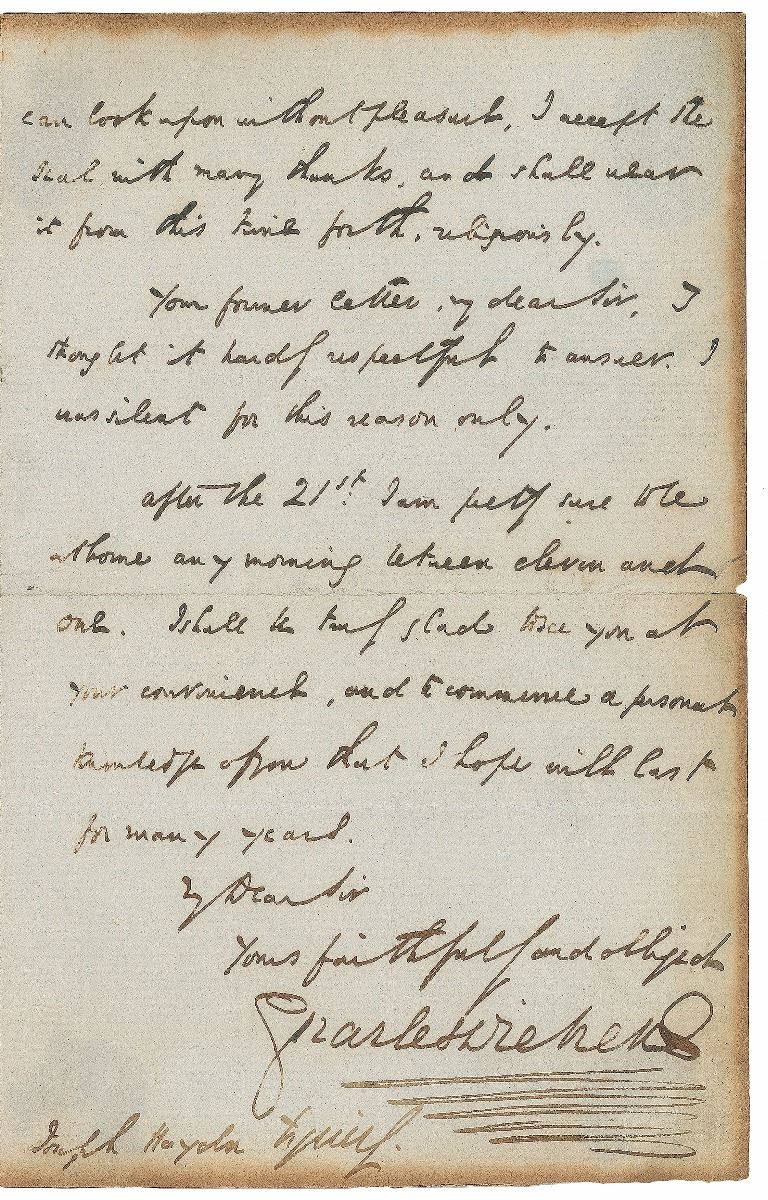 can look upon without pleasure, I accept the
seal with many thanks, and shall wear
it from this time forth, religiously.
Your former letter, my dear Sir, I
thought it hardly respectful to answer. I
was silent for this reason only.
after the 21st. I am pretty sure to be
at home any morning between eleven and
one. I shall be truly glad to see you at
your convenience, and to commence a personal
knowledge of you that I hope will last
for many years.
My Dear Sir
Yours faithfully and obliged
Charles Dickens
Joseph Haydn Esquire.